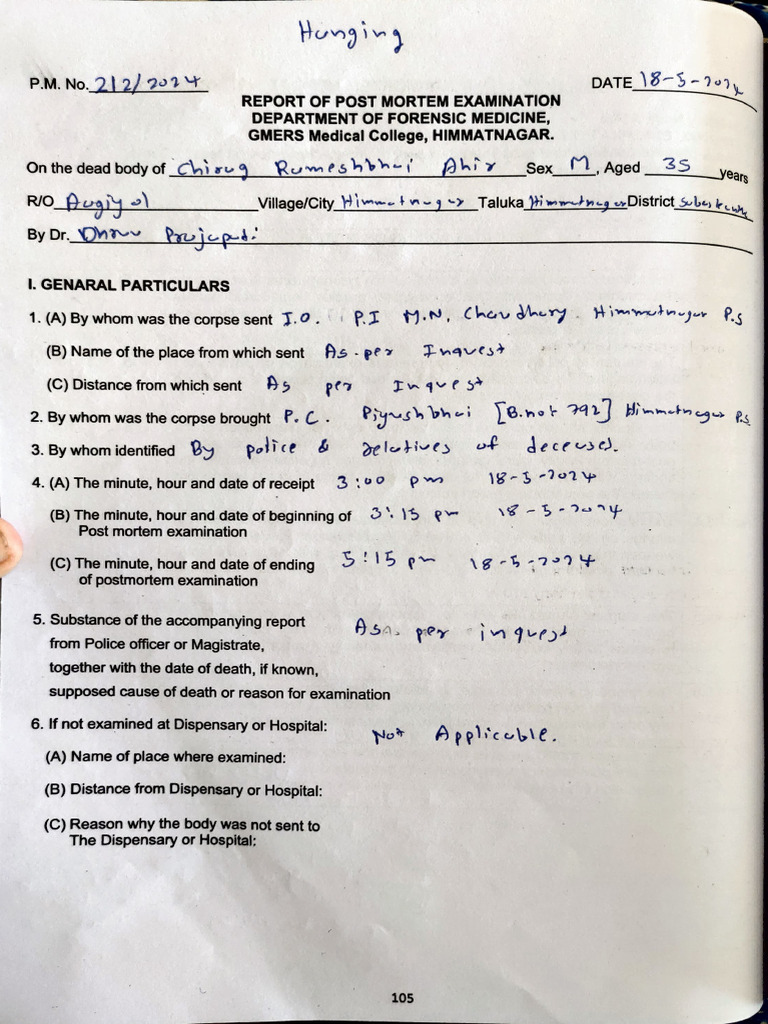 Hanging
P.M. No. 212/2024 DATE 18-5-2024
REPORT OF POST MORTEM EXAMINATION
DEPARTMENT OF FORENSIC MEDICINE,
GMERS Medical College, HIMMATNAGAR.
On the dead body of Chirag Rameshbhai Ahir Sex M, Aged 35 years
R/O Agiyol Village/City Himmatnagar Taluka Himmatnagar District Sabarkantha
By Dr. Dhruv Prajapati
I. GENARAL PARTICULARS
1. (A) By whom was the corpse sent I.O. P.I M.N. Chaudhary. Himmatnagar P.S
(B) Name of the place from which sent As per Inquest
(C) Distance from which sent As per Inquest
2. By whom was the corpse brought P.C. Piyushbhai [B.no+ 792] Himmatnagar P.S.
3. By whom identified By police & relatives of deceased.
4. (A) The minute, hour and date of receipt 3:00 pm 18-5-2024
(B) The minute, hour and date of beginning of 3:15 pm 18-5-2024
Post mortem examination
(C) The minute, hour and date of ending 5:15 pm 18-5-2024
of postmortem examination
5. Substance of the accompanying report As per inquest
from Police officer or Magistrate,
together with the date of death, if known,
supposed cause of death or reason for examination
6. If not examined at Dispensary or Hospital: Not Applicable.
(A) Name of place where examined:
(B) Distance from Dispensary or Hospital:
(C) Reason why the body was not sent to
The Dispensary or Hospital:
105